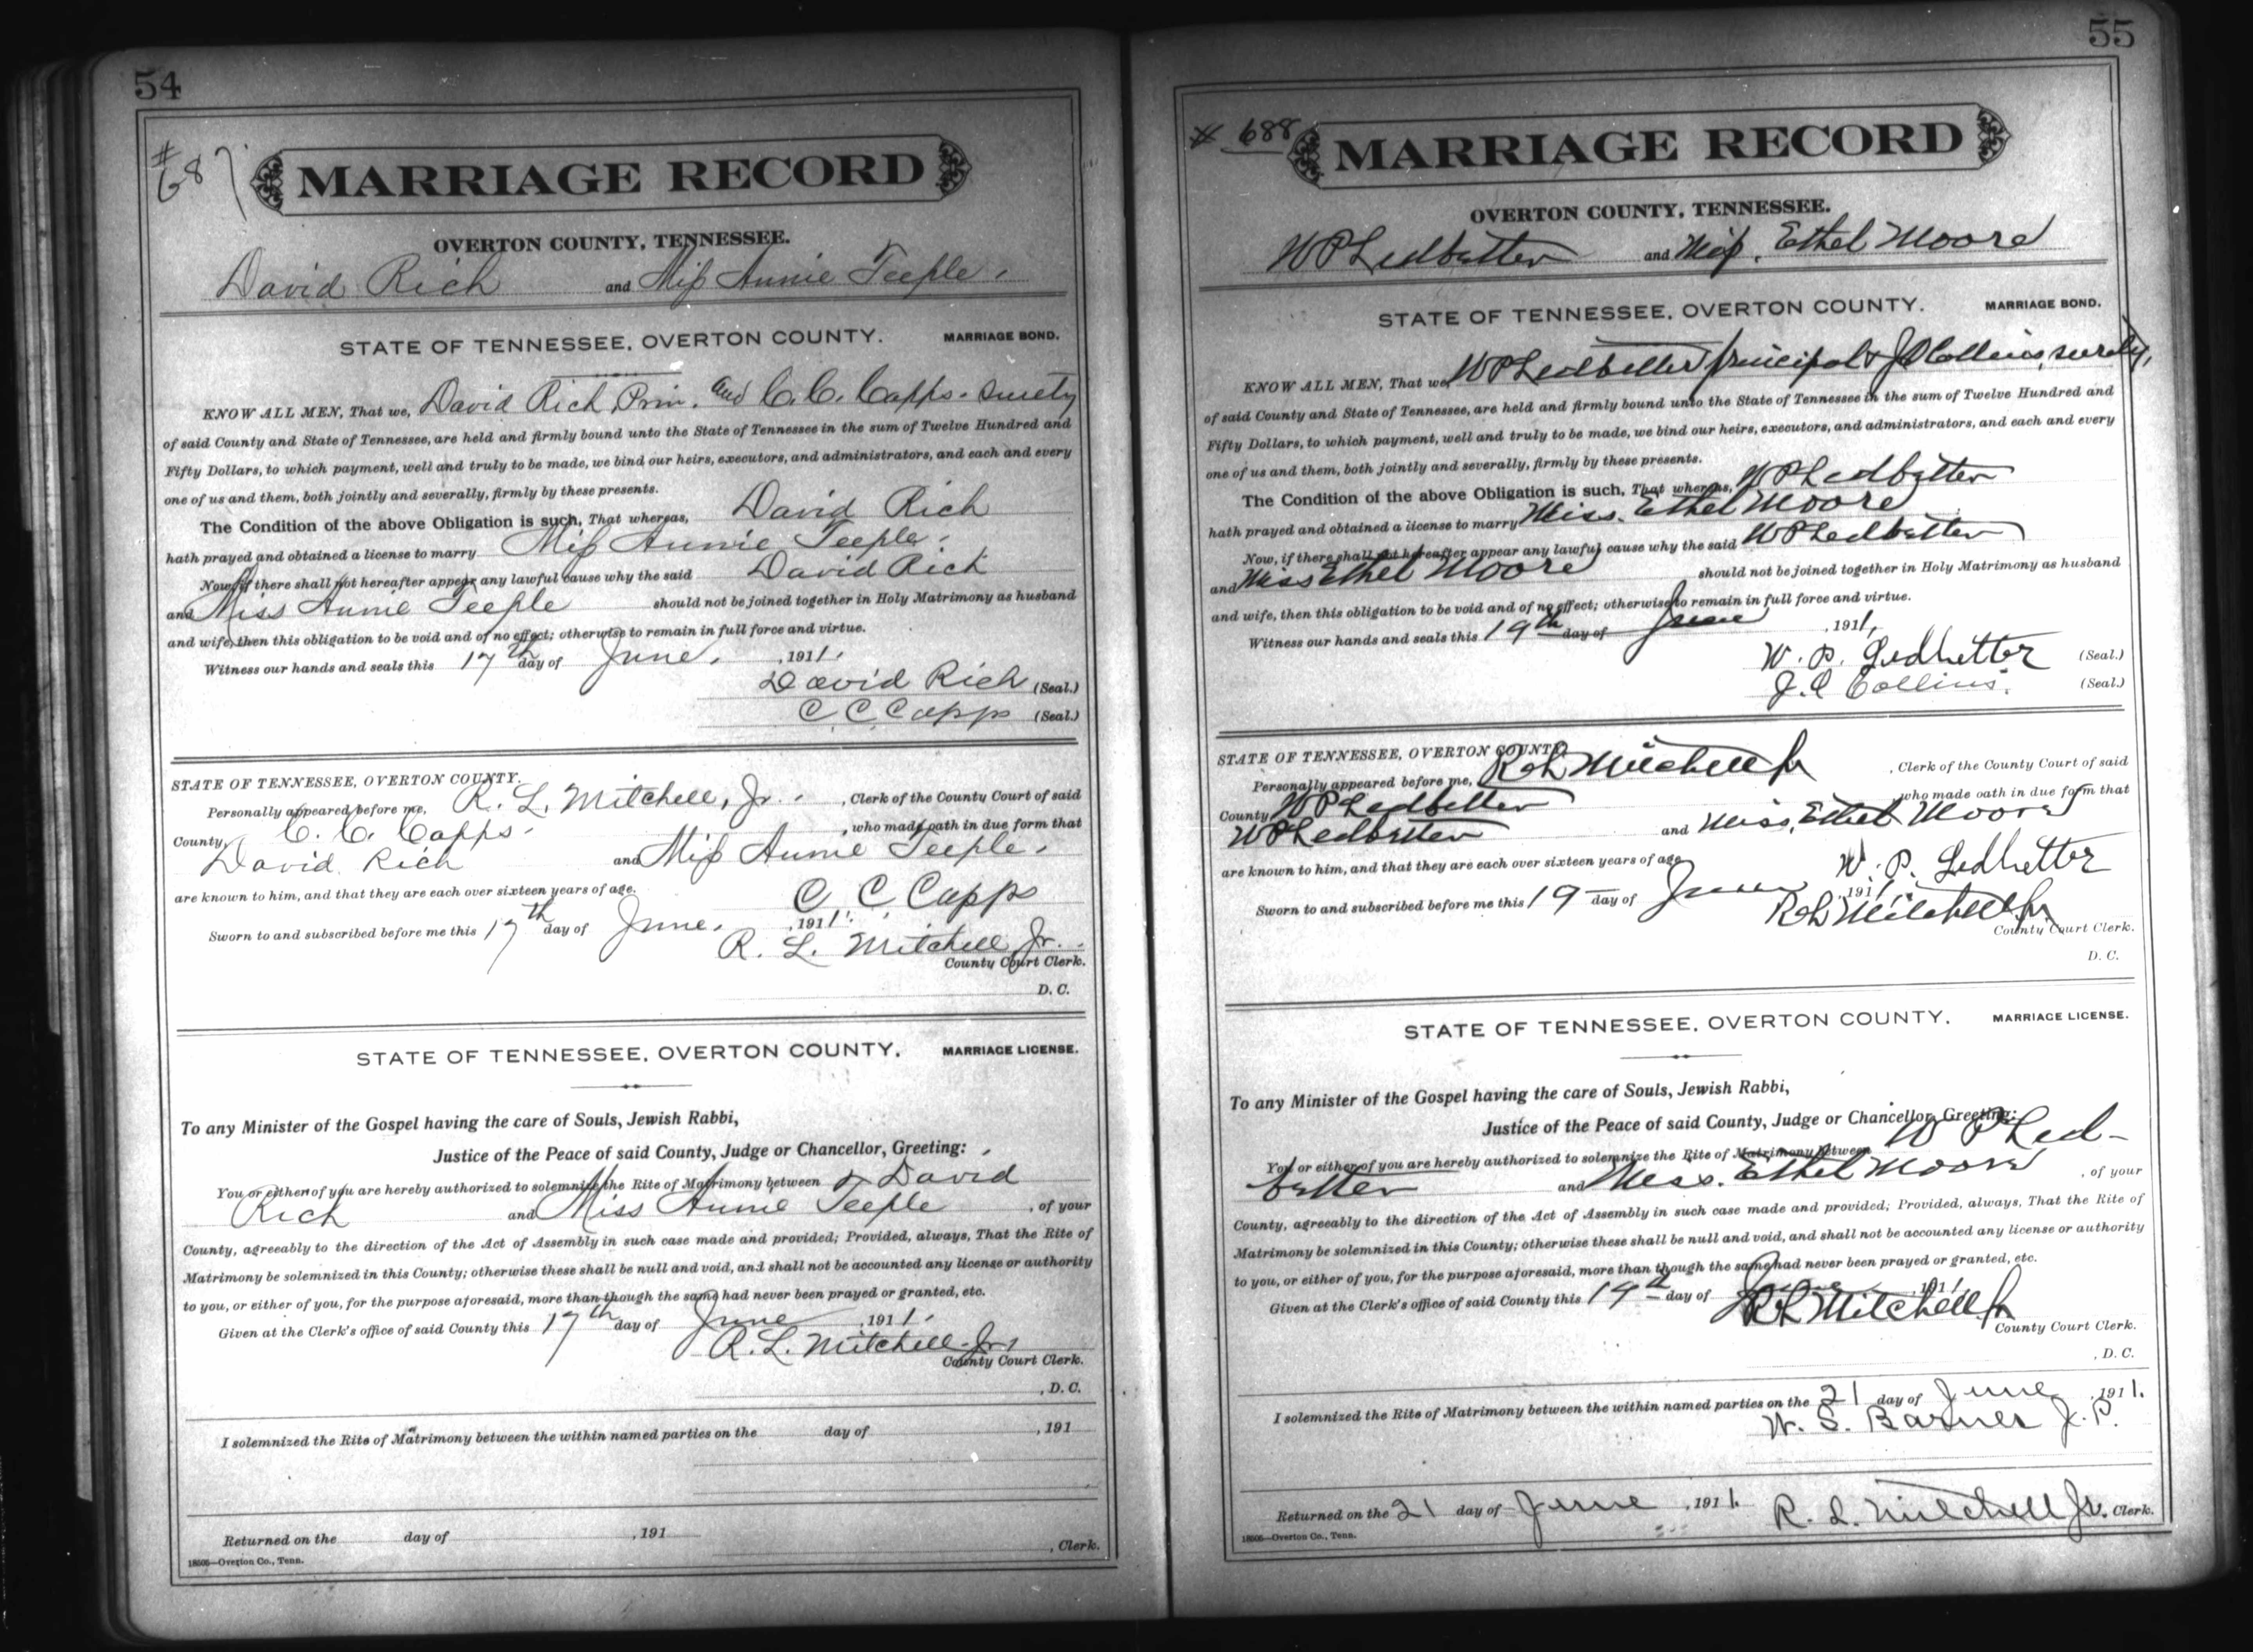 54
# 687
MARRIAGE RECORD
OVERTON COUNTY, TENNESSEE.
David Rich and Miss Annie Teeple.
STATE OF TENNESSEE, OVERTON COUNTY. MARRIAGE BOND.
KNOW ALL MEN, That we, David Rich, Prin. and C. C. Capps. Surety
of said County and State of Tennessee, are held and firmly bound unto the State of Tennessee in the sum of Twelve Hundred and
Fifty Dollars, to which payment, well and truly to be made, we bind our heirs, executors, and administrators, and each and every
one of us and them, both jointly and severally, firmly by these presents.
The Condition of the above Obligation is such, That whereas, David Rich
hath prayed and obtained a license to marry Miss Annie Teeple.
Now, if there shall not hereafter appear any lawful cause why the said David Rich
and Miss Annie Teeple should not be joined together in Holy Matrimony as husband
and wife, then this obligation to be void and of no effect; otherwise to remain in full force and virtue.
Witness our hands and seals this 17th day of June, , 1911.
David Rich (Seal.)
C C Capps (Seal.)
STATE OF TENNESSEE, OVERTON COUNTY.
Personally appeared before me, R. L. Mitchell, Jr. , Clerk of the County Court of said
County C. C. Capps. , who made oath in due form that
David Rich and Miss Annie Teeple.
are known to him, and that they are each over sixteen years of age.
C C Capps
Sworn to and subscribed before me this 17th day of June, , 1911.
R. L. Mitchell Jr.
County Court Clerk.
D. C.
STATE OF TENNESSEE, OVERTON COUNTY. MARRIAGE LICENSE.
To any Minister of the Gospel having the care of Souls, Jewish Rabbi,
Justice of the Peace of said County, Judge or Chancellor, Greeting:
You or either of you are hereby authorized to solemnize the Rite of Matrimony between David
Rich and Miss Annie Teeple , of your
County, agreeably to the direction of the Act of Assembly in such case made and provided; Provided, always, That the Rite of
Matrimony be solemnized in this County; otherwise these shall be null and void, and shall not be accounted any license or authority
to you, or either of you, for the purpose aforesaid, more than though the same had never been prayed or granted, etc.
Given at the Clerk's office of said County this 17th day of June , 1911.
R. L. Mitchell Jr.
County Court Clerk.
, D. C.
I solemnized the Rite of Matrimony between the within named parties on the day of , 191
Returned on the day of , 191
, Clerk.
18505—Overton Co., Tenn.
55
# 688
MARRIAGE RECORD
OVERTON COUNTY, TENNESSEE.
W P Ledbetter and Miss, Ethel Moore
STATE OF TENNESSEE, OVERTON COUNTY. MARRIAGE BOND.
KNOW ALL MEN, That we, W P Ledbetter principal & J O Collins, surety,
of said County and State of Tennessee, are held and firmly bound unto the State of Tennessee in the sum of Twelve Hundred and
Fifty Dollars, to which payment, well and truly to be made, we bind our heirs, executors, and administrators, and each and every
one of us and them, both jointly and severally, firmly by these presents.
The Condition of the above Obligation is such, That whereas, W P Ledbetter
hath prayed and obtained a license to marry Miss. Ethel Moore
Now, if there shall not hereafter appear any lawful cause why the said W P Ledbetter
and Miss Ethel Moore should not be joined together in Holy Matrimony as husband
and wife, then this obligation to be void and of no effect; otherwise to remain in full force and virtue.
Witness our hands and seals this 19th day of June , 1911,
W. P. Ledbetter (Seal.)
J. O Collins. (Seal.)
STATE OF TENNESSEE, OVERTON COUNTY.
Personally appeared before me, R L Mitchell Jr , Clerk of the County Court of said
County W P Ledbetter , who made oath in due form that
W P Ledbetter and Miss, Ethel Moore
are known to him, and that they are each over sixteen years of age.
W. P. Ledbetter
Sworn to and subscribed before me this 19 day of June , 1911.
R L Mitchell Jr
County Court Clerk.
D. C.
STATE OF TENNESSEE, OVERTON COUNTY. MARRIAGE LICENSE.
To any Minister of the Gospel having the care of Souls, Jewish Rabbi,
Justice of the Peace of said County, Judge or Chancellor, Greeting:
You or either of you are hereby authorized to solemnize the Rite of Matrimony between W P Led-
better and Miss. Ethel Moore , of your
County, agreeably to the direction of the Act of Assembly in such case made and provided; Provided, always, That the Rite of
Matrimony be solemnized in this County; otherwise these shall be null and void, and shall not be accounted any license or authority
to you, or either of you, for the purpose aforesaid, more than though the same had never been prayed or granted, etc.
Given at the Clerk's office of said County this 19th day of June , 1911.
R L Mitchell Jr
County Court Clerk.
, D. C.
I solemnized the Rite of Matrimony between the within named parties on the 21 day of June , 1911.
W. S. Barnes J. P.
Returned on the 21 day of June , 1911. R. L. Mitchell Jr. Clerk.
18505—Overton Co., Tenn.